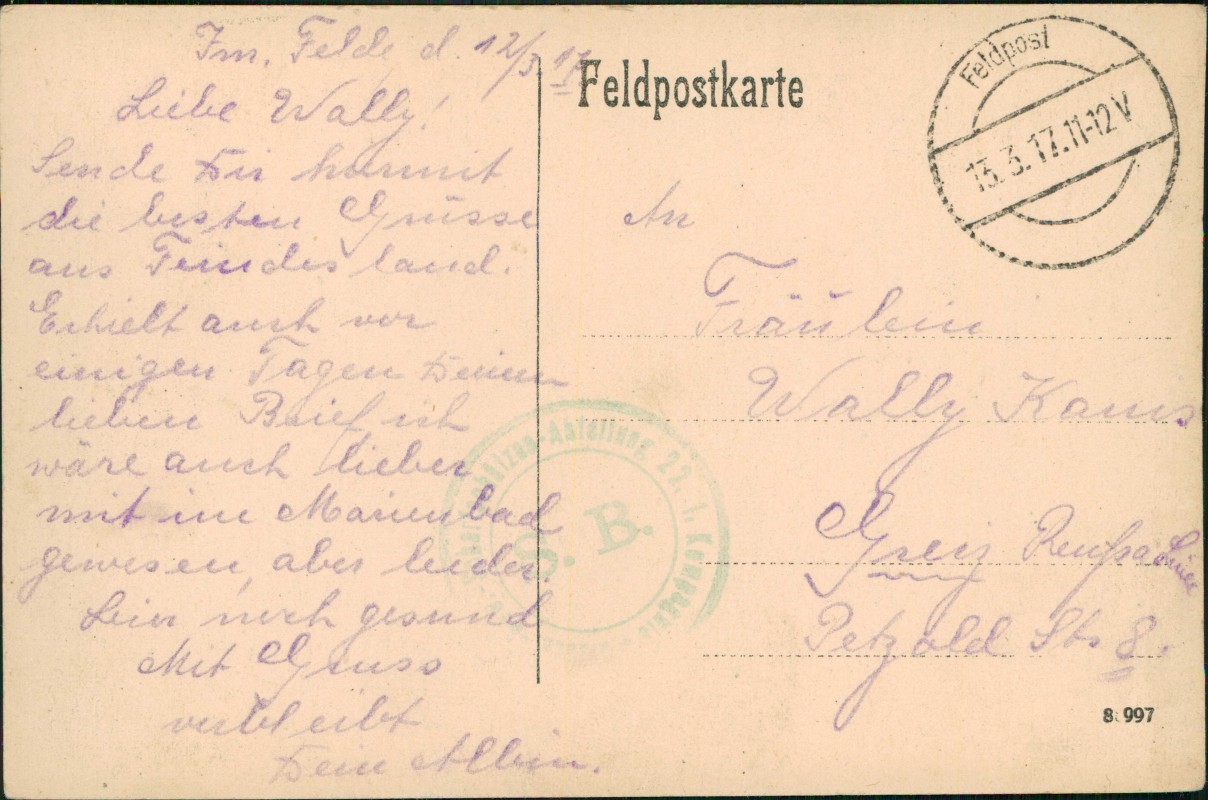 Im. Felde d. 12/3 17
Liebe Wally!
Sende Dir hiermit
die besten Grüsse
aus Feindesland.
Erhielt auch vor
einigen Tagen Deinen
lieben Brief ich
wäre auch lieber
mit im Marienbad
gewesen, aber leider.
noch gesund
Mit Gruss
verbleibt
Dein Albin.
Feldpostkarte
Feldpost
13.3.17.11-12V
An
Fräulein
Wally
Greiz
Petzold Str 8.
S. B.
8 997